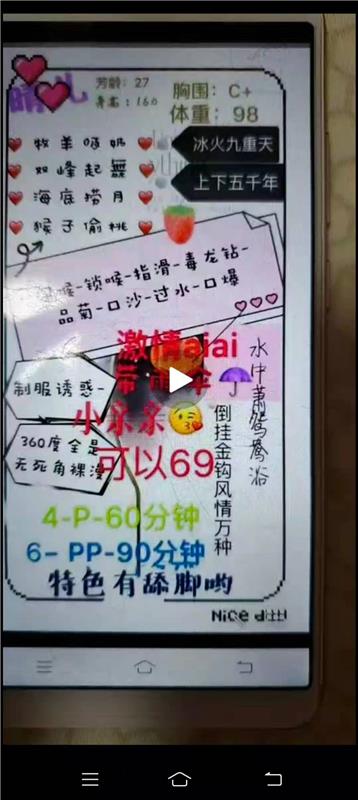 晴儿
芳龄：27
身高：160
胸围：C+
体重：98
牧羊呧奶
双峰起舞
海底捞月
猴子偷桃
冰火九重天
上下五千年
喉-锁喉-指滑-毒龙钻-
品菊-口沙-过水-口爆
激情aiai
带雨伞
小亲亲
可以69
制服诱惑-
360度全是
无死角裸漫
水中萧鸳鸯浴
倒挂金钩风情万种
4-P-60分钟
6- PP-90分钟
特色有舔脚哟
Nice